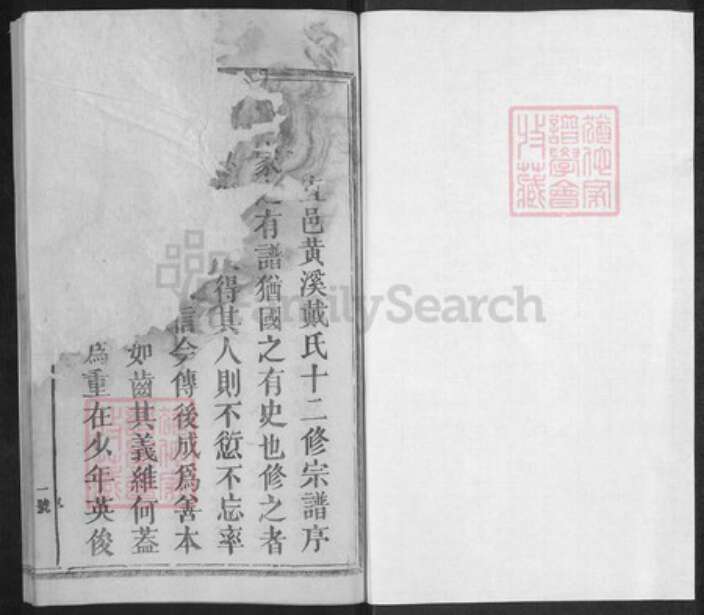 邑黄溪戴氏十二修宗譜序
家之有譜猶國之有史也修之者
得其人則不愆不忘率
信今傳後成爲善本
如齒其義維何蓋
爲重在少年英俊
一號
FamilySearch